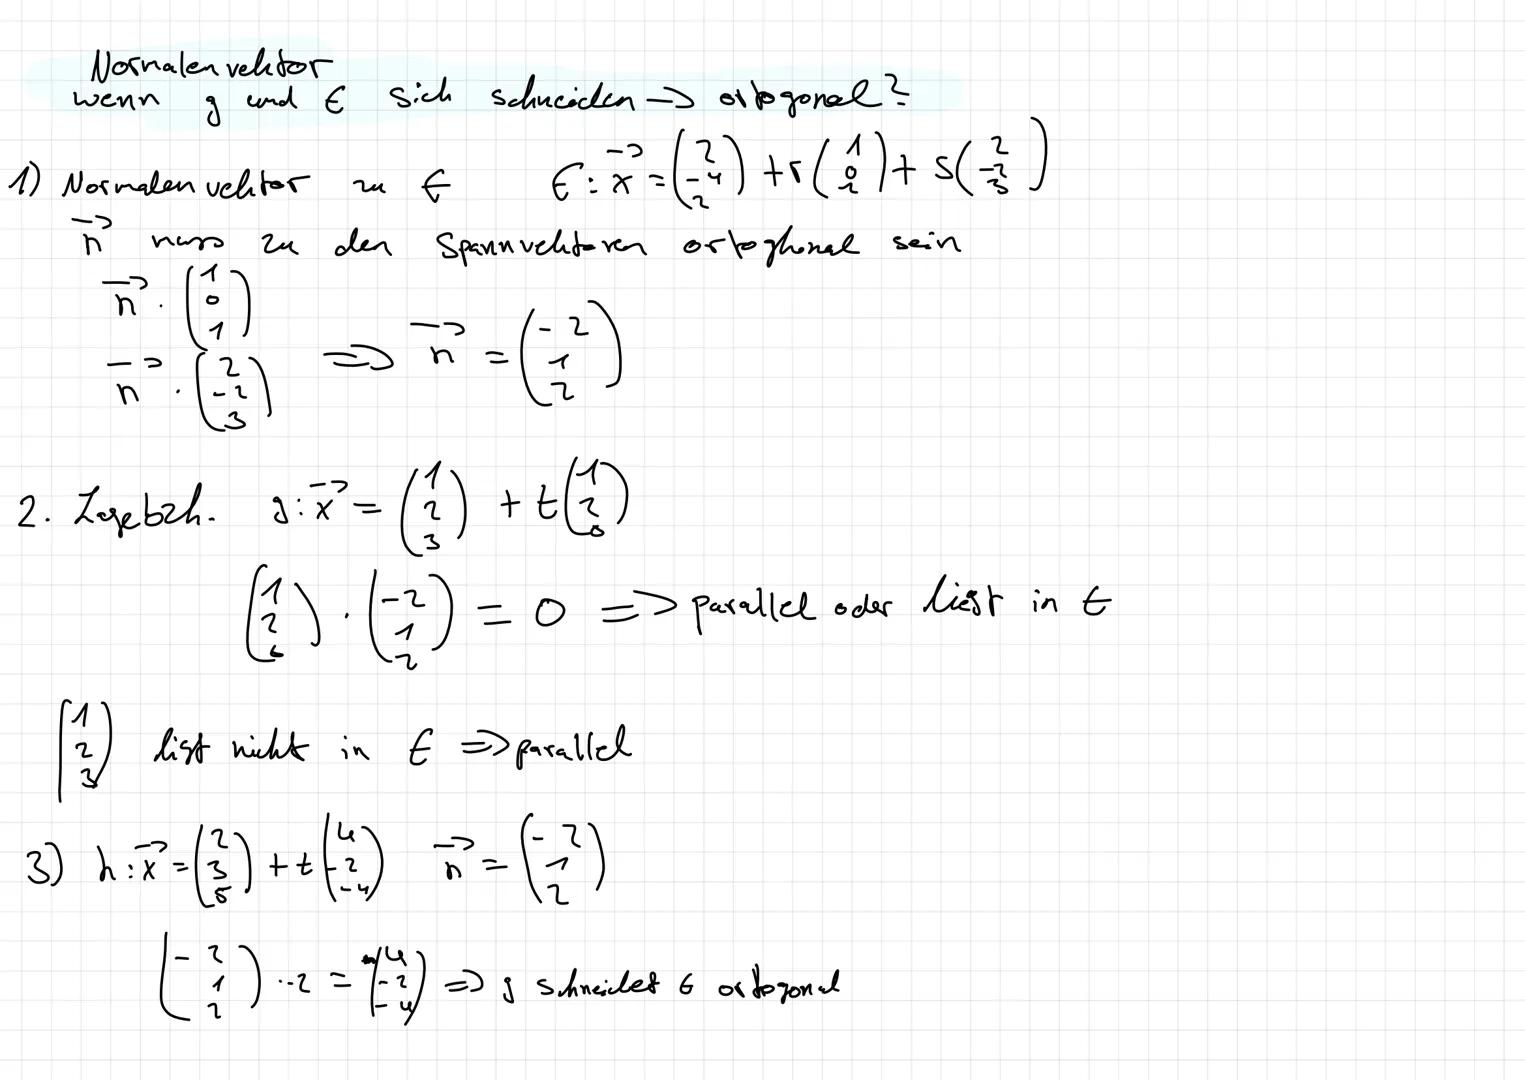 Normalenvektor
wenn g und E sich schneiden → ortogonal?
1) Normalenvektor zu E E: x⃗ = (2 -4 2) + r (1 0 1) + s (2 -2 3)
n⃗ muss zu den Spannvektoren ortoghonal sein
n⃗ · (1 0 1)
n⃗ · (2 -2 3) ⇒ n⃗ = (-2 1 2)
2. Lagebzh. g: x⃗ = (1 2 3) + t (1 2 0)
(1 2 0) · (-2 1 2) = 0 ⇒ parallel oder liegt in E
(1 2 3) ligt nicht in E ⇒ parallel
3) h: x⃗ = (2 3 5) + t (4 -2 -4) n⃗ = (-2 1 2)
(-2 1 2) · -2 = (4 -2 -4) ⇒ g schneidet E ortogonal